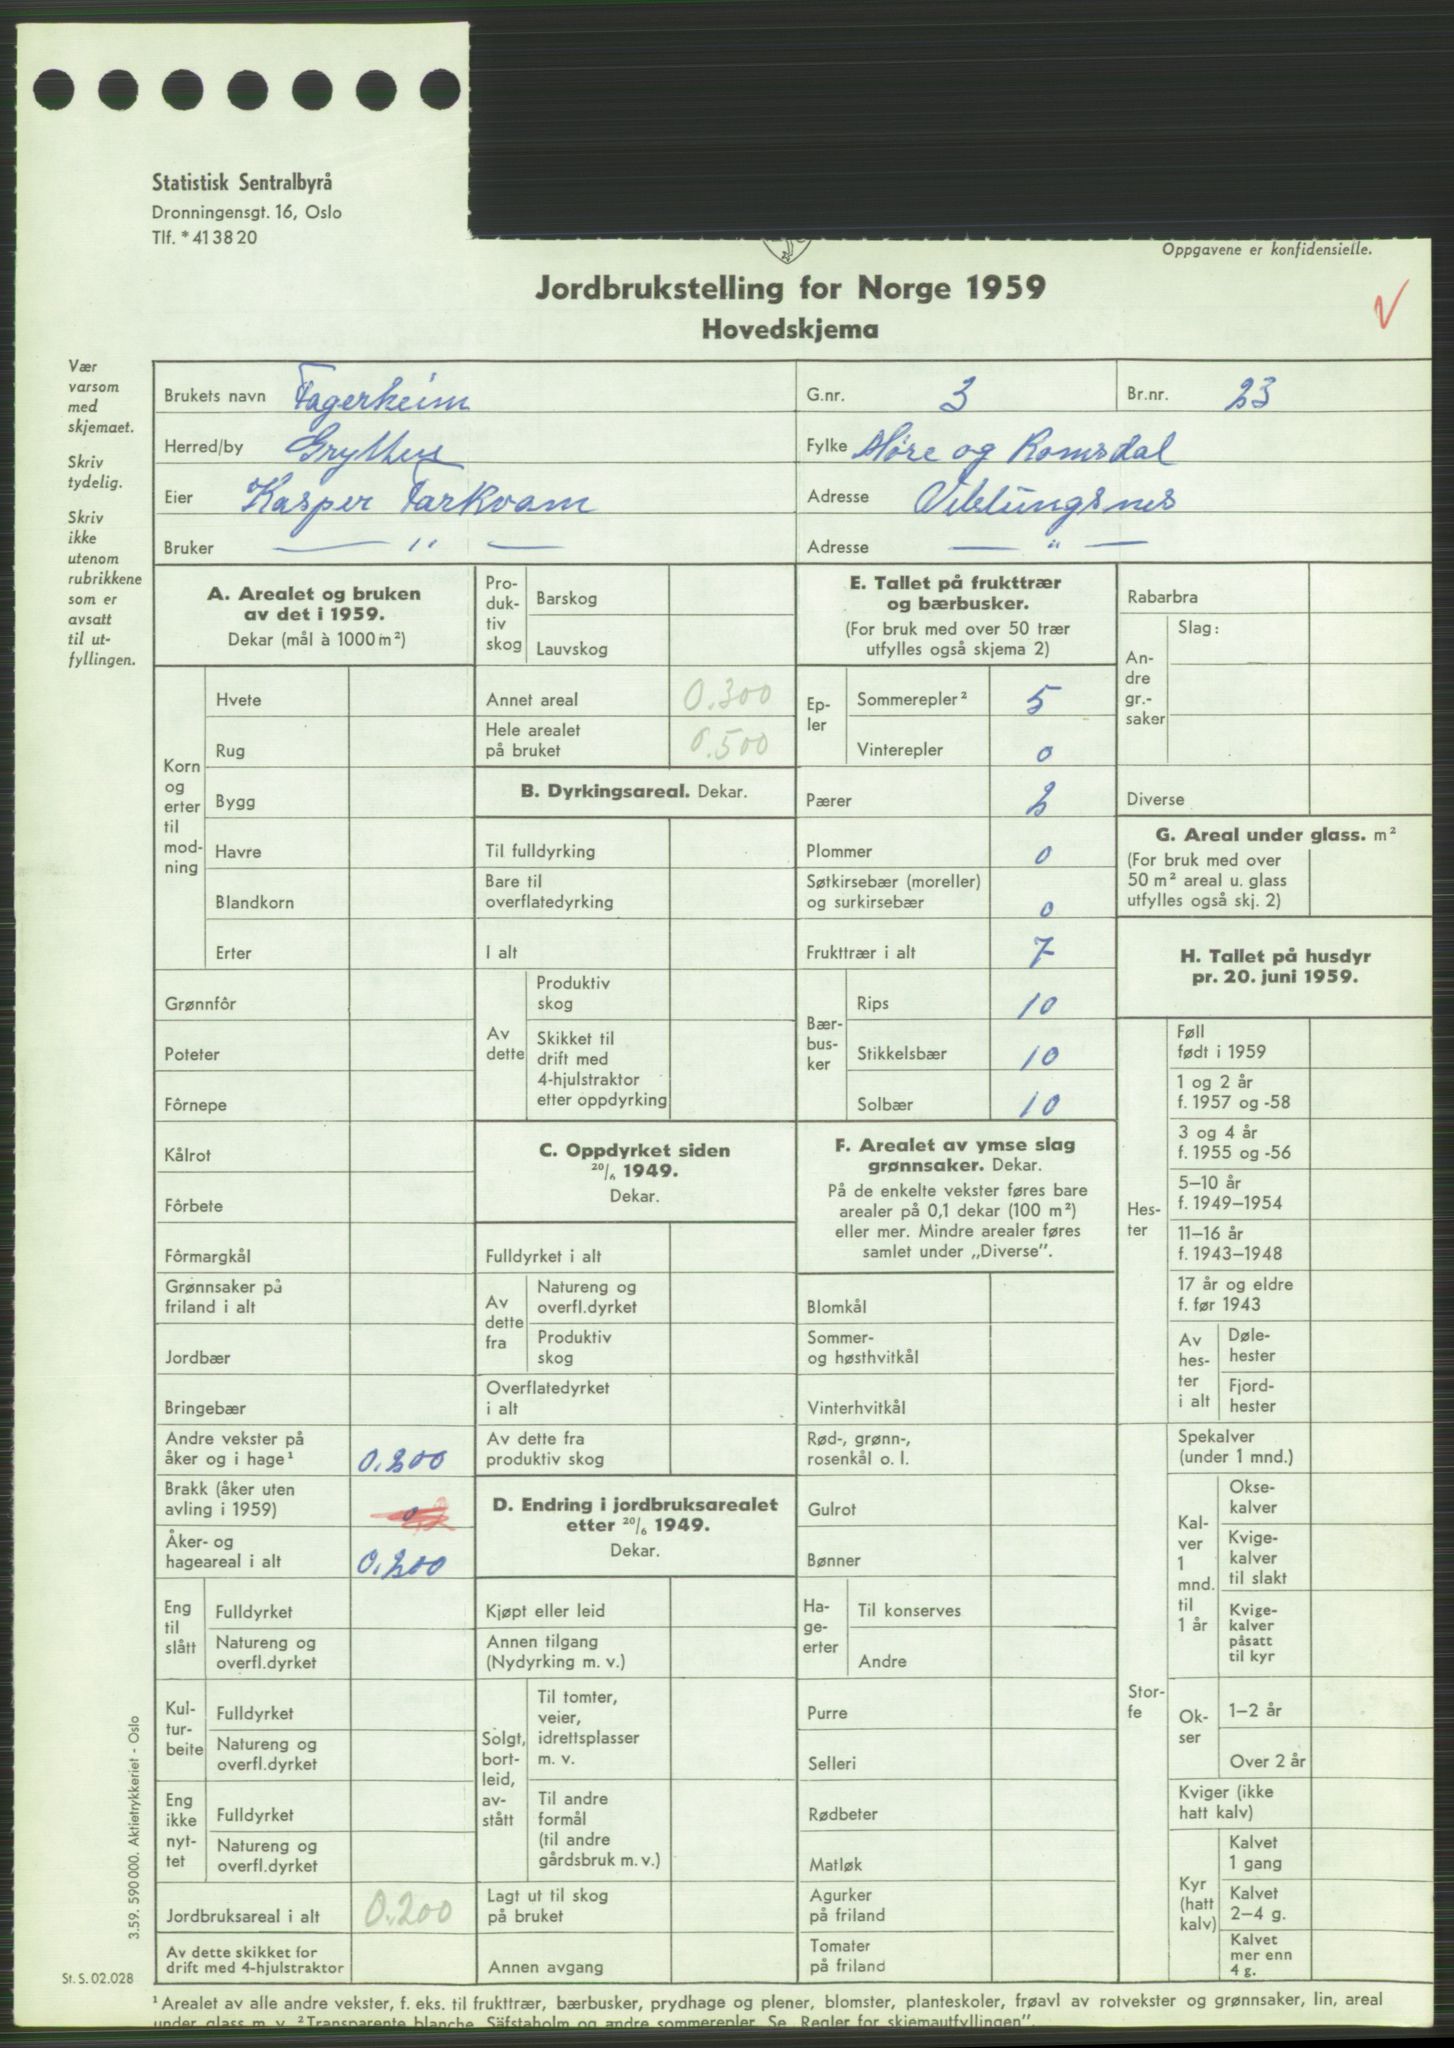 Statistisk Sentralbyrå
Dronningensgt. 16, Oslo
Tlf. *41 38 20
Oppgavene er konfidensielle.
Jordbrukstelling for Norge 1959
Hovedskjema
V
Vær varsom med skjemaet.
Skriv tydelig.
Skriv ikke utenom rubrikkene som er avsatt til utfyllingen.
Brukets navn Fagerheim G.nr. 3 Br.nr. 23
Herred/by Grytten Fylke Møre og Romsdal
Eier Kasper Tarkvam Adresse Veblungsnes
Bruker — " — Adresse — " —
A. Arealet og bruken
av det i 1959.
Dekar (mål à 1000 m²)
Korn og erter til modning
Hvete
Rug
Bygg
Havre
Blandkorn
Erter
Grønnfôr
Poteter
Fôrnepe
Kålrot
Fôrbete
Fôrmargkål
Grønnsaker på
friland i alt
Jordbær
Bringebær
Andre vekster på
åker og i hage¹ 0.200
Brakk (åker uten
avling i 1959) 0
Åker- og
hageareal i alt 0.200
Eng til slått
Fulldyrket
Natureng og
overfl.dyrket
Kulturbeite
Fulldyrket
Natureng og
overfl.dyrket
Eng ikke nyttet
Fulldyrket
Natureng og
overfl.dyrket
Jordbruksareal i alt 0.200
Av dette skikket for
drift med 4-hjulstraktor
Produktiv skog
Barskog
Lauvskog
Annet areal 0.300
Hele arealet
på bruket 0.500
B. Dyrkingsareal. Dekar.
Til fulldyrking
Bare til
overflatedyrking
I alt
Av dette
Produktiv
skog
Skikket til
drift med
4-hjulstraktor
etter oppdyrking
C. Oppdyrket siden
20/6 1949.
Dekar.
Fulldyrket i alt
Av dette fra
Natureng og
overfl.dyrket
Produktiv
skog
Overflatedyrket
i alt
Av dette fra
produktiv skog
D. Endring i jordbruksarealet
etter 20/6 1949.
Dekar.
Kjøpt eller leid
Annen tilgang
(Nydyrking m. v.)
Solgt, bortleid, avstått
Til tomter,
veier,
idrettsplasser
m. v.
Til andre
formål
(til andre
gårdsbruk m. v.)
Lagt ut til skog
på bruket
Annen avgang
E. Tallet på frukttrær
og bærbusker.
(For bruk med over 50 trær
utfylles også skjema 2)
Epler
Sommerepler² 5
Vinterepler 0
Pærer 2
Plommer 0
Søtkirsebær (moreller)
og surkirsebær 0
Frukttrær i alt 7
Bærbusker
Rips 10
Stikkelsbær 10
Solbær 10
F. Arealet av ymse slag
grønnsaker. Dekar.
På de enkelte vekster føres bare
arealer på 0,1 dekar (100 m²)
eller mer. Mindre arealer føres
samlet under „Diverse”.
Blomkål
Sommer-
og høsthvitkål
Vinterhvitkål
Rød-, grønn-,
rosenkål o. l.
Gulrot
Bønner
Hageerter
Til konserves
Andre
Purre
Selleri
Rødbeter
Matløk
Agurker
på friland
Tomater
på friland
Rabarbra
Andre gr.-saker
Slag:
Diverse
G. Areal under glass. m²
(For bruk med over
50 m² areal u. glass
utfylles også skj. 2)
H. Tallet på husdyr
pr. 20. juni 1959.
Hester
Føll
født i 1959
1 og 2 år
f. 1957 og -58
3 og 4 år
f. 1955 og -56
5–10 år
f. 1949–1954
11–16 år
f. 1943–1948
17 år og eldre
f. før 1943
Av hester i alt
Dølehester
Fjordhester
Storfe
Spekalver
(under 1 mnd.)
Kalver 1 mnd. til 1 år
Oksekalver
Kvigekalver
til slakt
Kvigekalver
påsatt
til kyr
Okser
1–2 år
Over 2 år
Kviger (ikke
hatt kalv)
Kyr (hatt kalv)
Kalvet
1 gang
Kalvet
2–4 g.
Kalvet
mer enn
4 g.
3.59. 590 000. Aktietrykkeriet - Oslo
St. S. 02.028
¹ Arealet av alle andre vekster, f. eks. til frukttrær, bærbusker, prydhage og plener, blomster, planteskoler, frøavl av rotvekster og grønnsaker, lin, areal
under glass m. v. ² Transparente blanche, Säfstaholm og andre sommerepler. Se „Regler for skjemautfyllingen”.